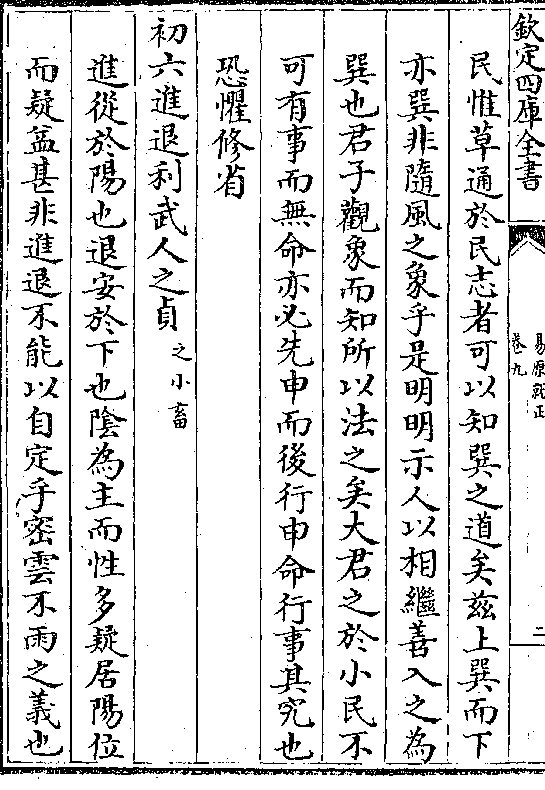 欽定四庫全書
易原就正
卷九
二
民惟草通於民志者可以知巽之道矣兹上巽而下
亦巽非隨風之象乎是明明示人以相繼善入之為
巽也君子觀象而知所以法之矣大君之於小民不
可有事而無命亦必先申而後行申命行事其究也
恐懼修省
初六進退利武人之貞之小畜
進從於陽也退安於下也陰為主而性多疑居陽位
而疑益甚非進退不能以自定乎密雲不雨之義也